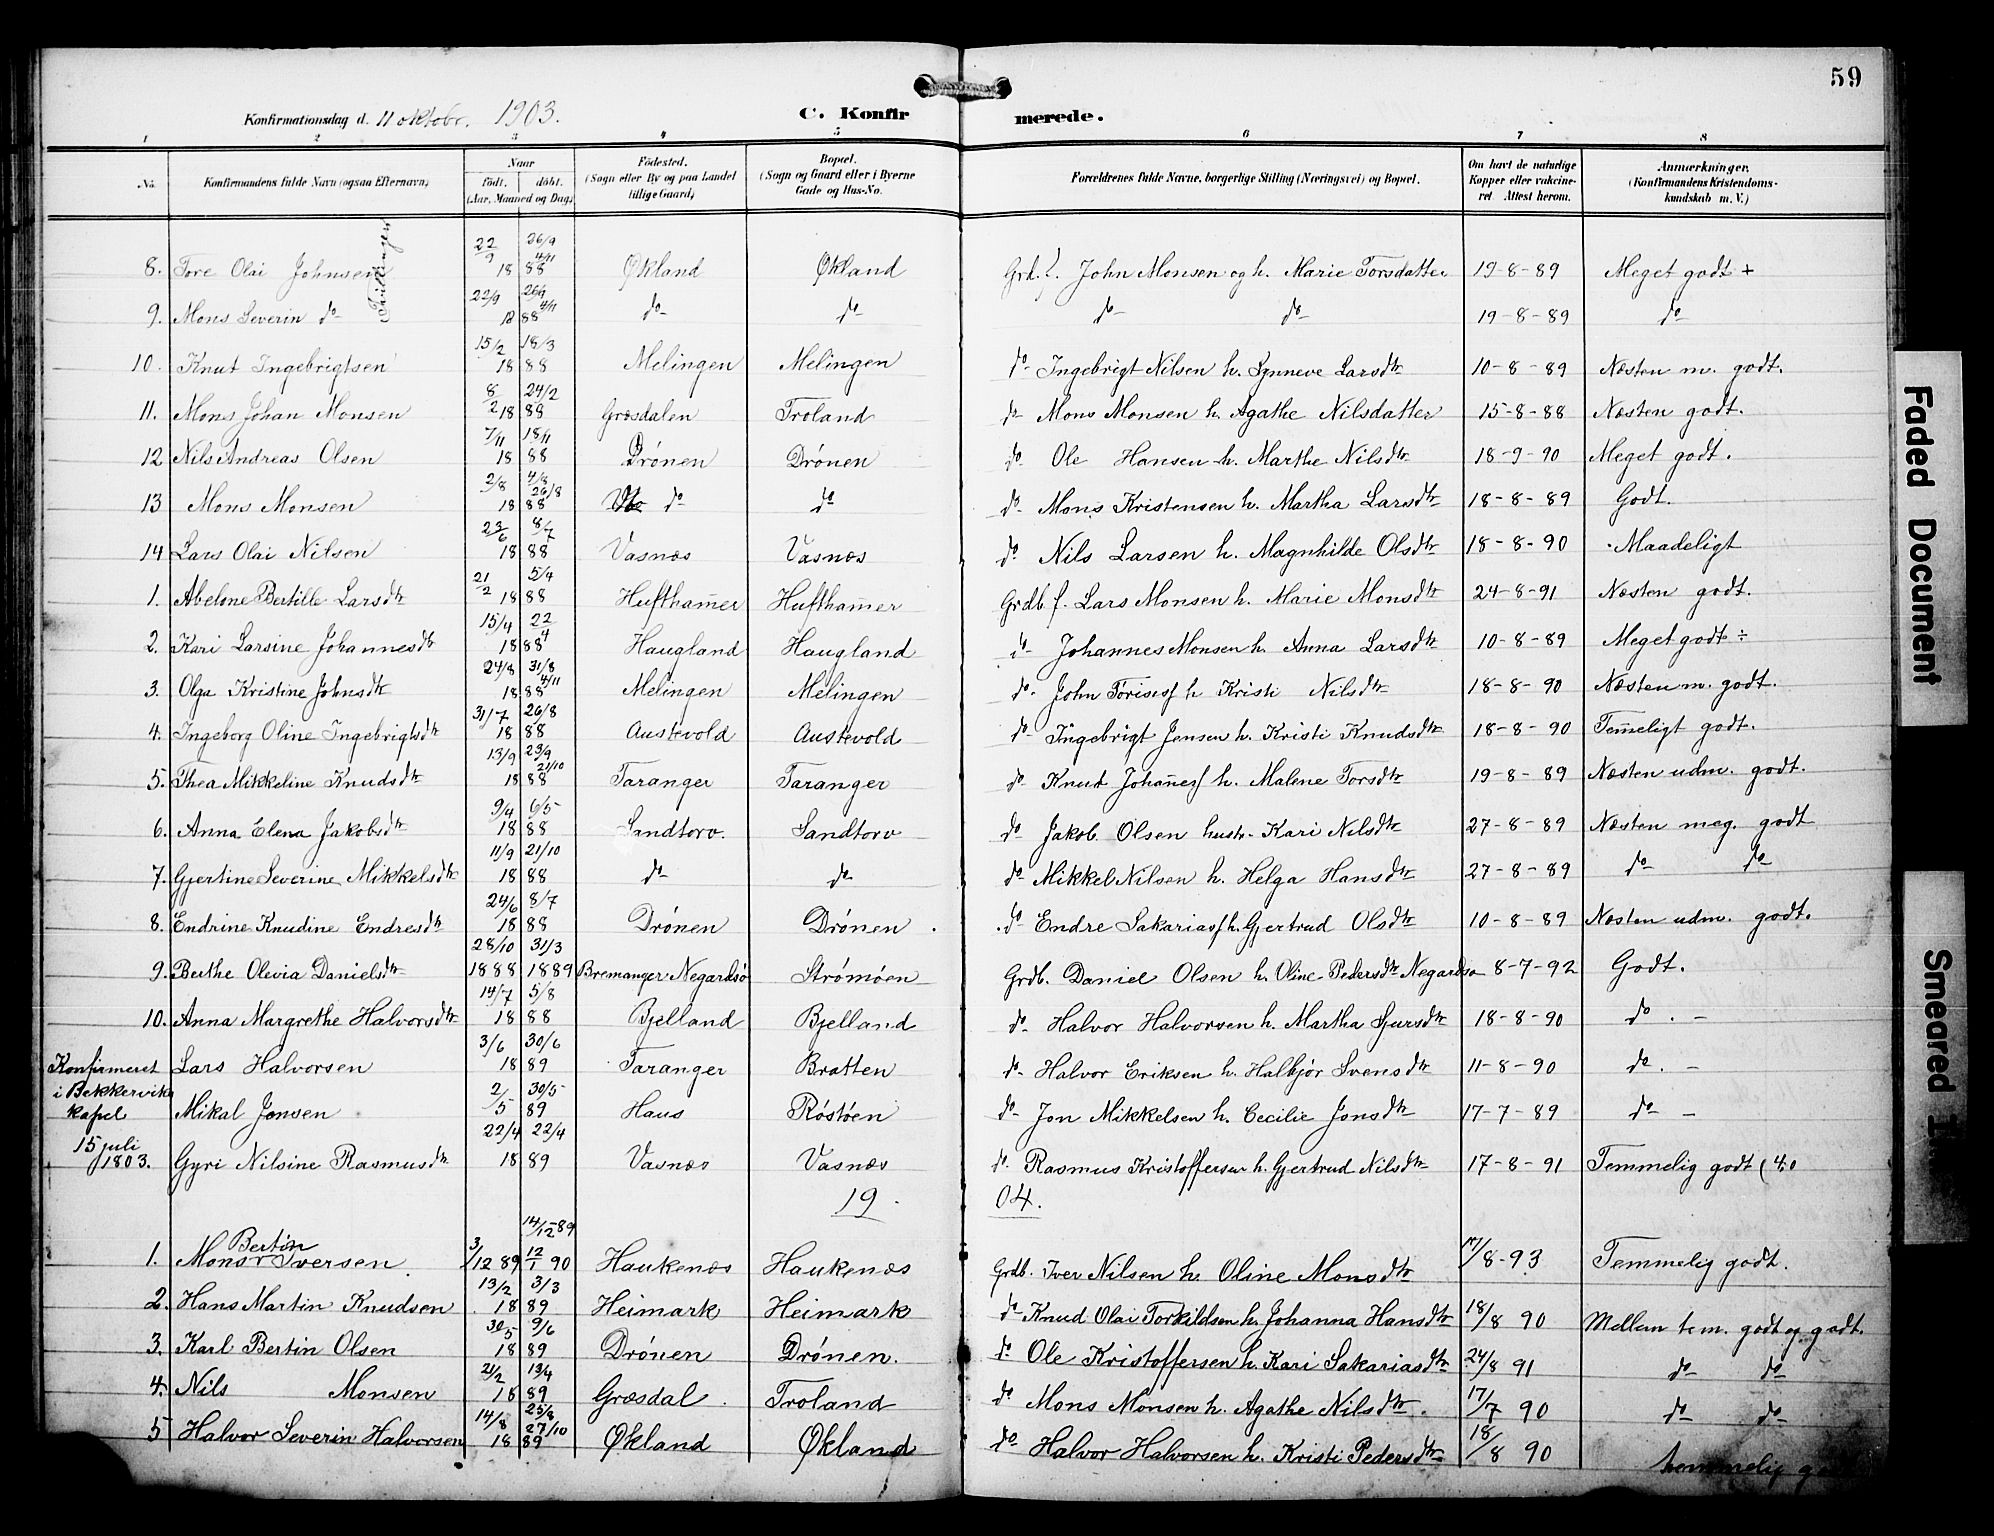 59
Konfirmationsdag d. 11 oktobr. 1903. C. Konfirmerede.
1 2 3 4 5 6 7 8
No. Konfirmandens fulde Navn (ogsaa Efternavn) Naar født. døbt. (Aar, Maaned og Dag) Födested. (Sogn eller By og paa Landet tillige Gaard) Bopæl. (Sogn og Gaard eller i Byerne Gade og Hus-No. Forældrenes fulde Navne, borgerlige Stilling (Næringsvei) og Bopæl. Om havt de naturlige Kopper eller vakcineret Attest herom. Anmærkninger. (Konfirmandens Kristendomskundskab m. V.)
8. Tore Olai Johnsen Tvillinger 22/9 26/9 4/11 1888 Økland Økland Grd.f. John Monsen og h. Marie Torsdatter 19-8-89 Meget godt +
9. Mons Severin do 22/9 26/9 4/11 1888 do do do do 19-8-89 do
10. Knut Ingebrigtsen 15/2 18/3 1888 Melingen Melingen do Ingebrigt Nilsen h. Synneve Larsdtr 10-8-89 Næsten m. godt.
11. Mons Johan Monsen 8/2 24/2 1888 Græsdalen Troland do Mons Monsen h. Agathe Nilsdatter 15-8-88 Næsten godt.
12 Nils Andreas Olsen 7/11 18/11 1888 Drónen Drónen do Ole Hansen h. Marthe Nilsdtr 18-9-90 Meget godt.
13 Mons Monsen 2/8 4/8 26/8 1888 do do do Mons Kristensen h. Martha Larsdtr 18-8-89 Godt.
14 Lars Olai Nilsen 23/6 8/7 1888 Vasnæs Vasnæs do Nils Larsen h. Magnhilde Olsdtr 18-8-90 Maadeligt
1. Abelone Bertille Larsdtr 21/2 5/4 1888 Huftham̄er Huftham̄er Grdb.f. Lars Monsen h. Marie Monsdtr 24-8-91 Næsten godt.
2. Kari Larsine Johannesdtr 15/4 22/4 1888 Haugland Haugland Johannes Monsen h. Anna Larsdtr 10-8-89 Meget godt ÷
3. Olga Kristine Johnsdtr 24/8 31/8 4/11 1888 Melingen Melingen do John h Kristi Nilsdtr 18-8-90 Næsten m. godt.
4. Ingeborg Oline Ingebrigtsdtr 31/7 26/8 1888 Austevold Austevold do Ingebrigt Jensen h. Kristi Knudsdtr 18-8-90 Tem̄eligt godt.
5. Thea Mikkeline Knudsdtr 13/9 23/9 21/10 1888 Taranger Taranger do Knud Johan̄esf h. Malene Torsdtr 19-8-89 Næsten udm. godt.
6. Anna Elena Jakobsdtr 9/4 6/5 1888 Sandtorv. Sandtorv do Jakob Olsen hustr. Kari Nilsdtr 27-8-89 Næsten meg. godt
7. Gjertine Severine Mikkelsdtr 11/9 21/10 1888 do do do Mikkel Nilsen h. Helga Hansdtr 27-8-89 do do
8. Endrine Knudine Endresdtr 24/6 8/7 1888 Drónen Drónen. do Endre Sakariasf h. Gjertrud Olsdtr 10-8-89 Næsten udm. godt.
9. Berthe Olevia Danielsdtr 28/10 1888 31/3 1889 Bremanger Negardsø Strómóen Grdb. Daniel Olsen h. Oline Pedersdtr Negardsø 8-7-92 Godt.
10. Anna Margrethe Halvorsdtr 14/7 5/8 1888 Bjelland Bjelland do Halvor Halvorsen h. Martha Sjursdtr 18-8-90 do. -
Konfirmeret Lars Halvorsen 3/6 30/6 1889 Taranger Bratten do Halvor Eriksen h. Halbjór Svensdtr 11-8-90 do. -
i Bekkervik
kapel Mikal Jonsen 2/5 30/5 89 Haus Róstóen do Jon Mikkelsen h. Cecilie Jonsdtr 17-7-89 do -
15 juli
1803. Gyri Nilsine Rasmusdtr 22/4 22/4 1889 Vasnæs Vasnæs do Rasmus Kristoffersen h. Gjertrud Nilsdtr 17-8-91 Temmelig godt
19 04.
1. Mons Bertin Iversen 3/12 89 14/12-89 12/1 90 Haukenæs Haukenæs Grdb. Iver Nilsen h. Oline Monsdtr 17/8-93 Temmelig godt.
2. Hans Martin Knudsen 13/2 3/3 1889 Heimark Heimark do Knud Olai Torkildsen h. Johanna Hansdtr 18/8 90 Mellem tem. godt og godt.
3. Karl Bertin Olsen 30/5 9/6 1889 Drónen Drónen. do Ole Kristoffersen h. Kari Sakariasdtr 24/8 91 do do
4. Nils Monsen 21/2 13/4 1889 Græsdal. Troland do Mons Monsen h. Agathe Nilsdtr. 17/7 90 do do
5 Halvor Severin Halvorsen 14/8 25/8 27/10 1889 Økland Økland do Halvor Halvorsen h. Kristi Pedersdtr 18/8 90 temmelig
Faded Document
Smeared